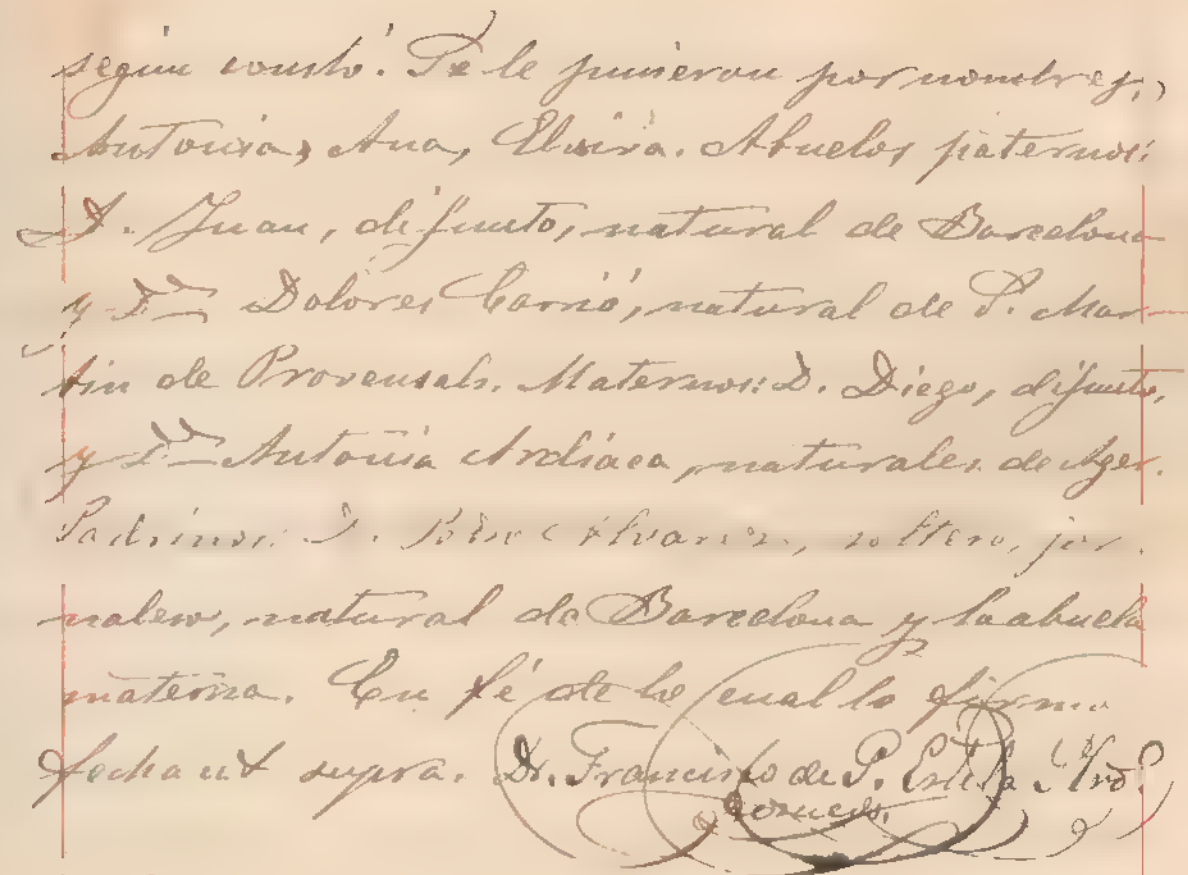 según consta. Se le pusieron por nombres,
Antonia, Ana, Elvira. Abuelos paternos:
D. Juan, difunto, natural de Barcelona
y Dª Dolores Carrió, natural de S. Mar-
tin de Provensals. Maternos: D. Diego, difunto,
y Dª Antonia Ardiaca, naturales de Ager.
Padrinos: D. Alvarez, soltero, jor-
nalero, natural de Barcelona y la abuela
materna. En fé de lo cual lo firmo
fecha ut supra. Dr. Francisco de P.